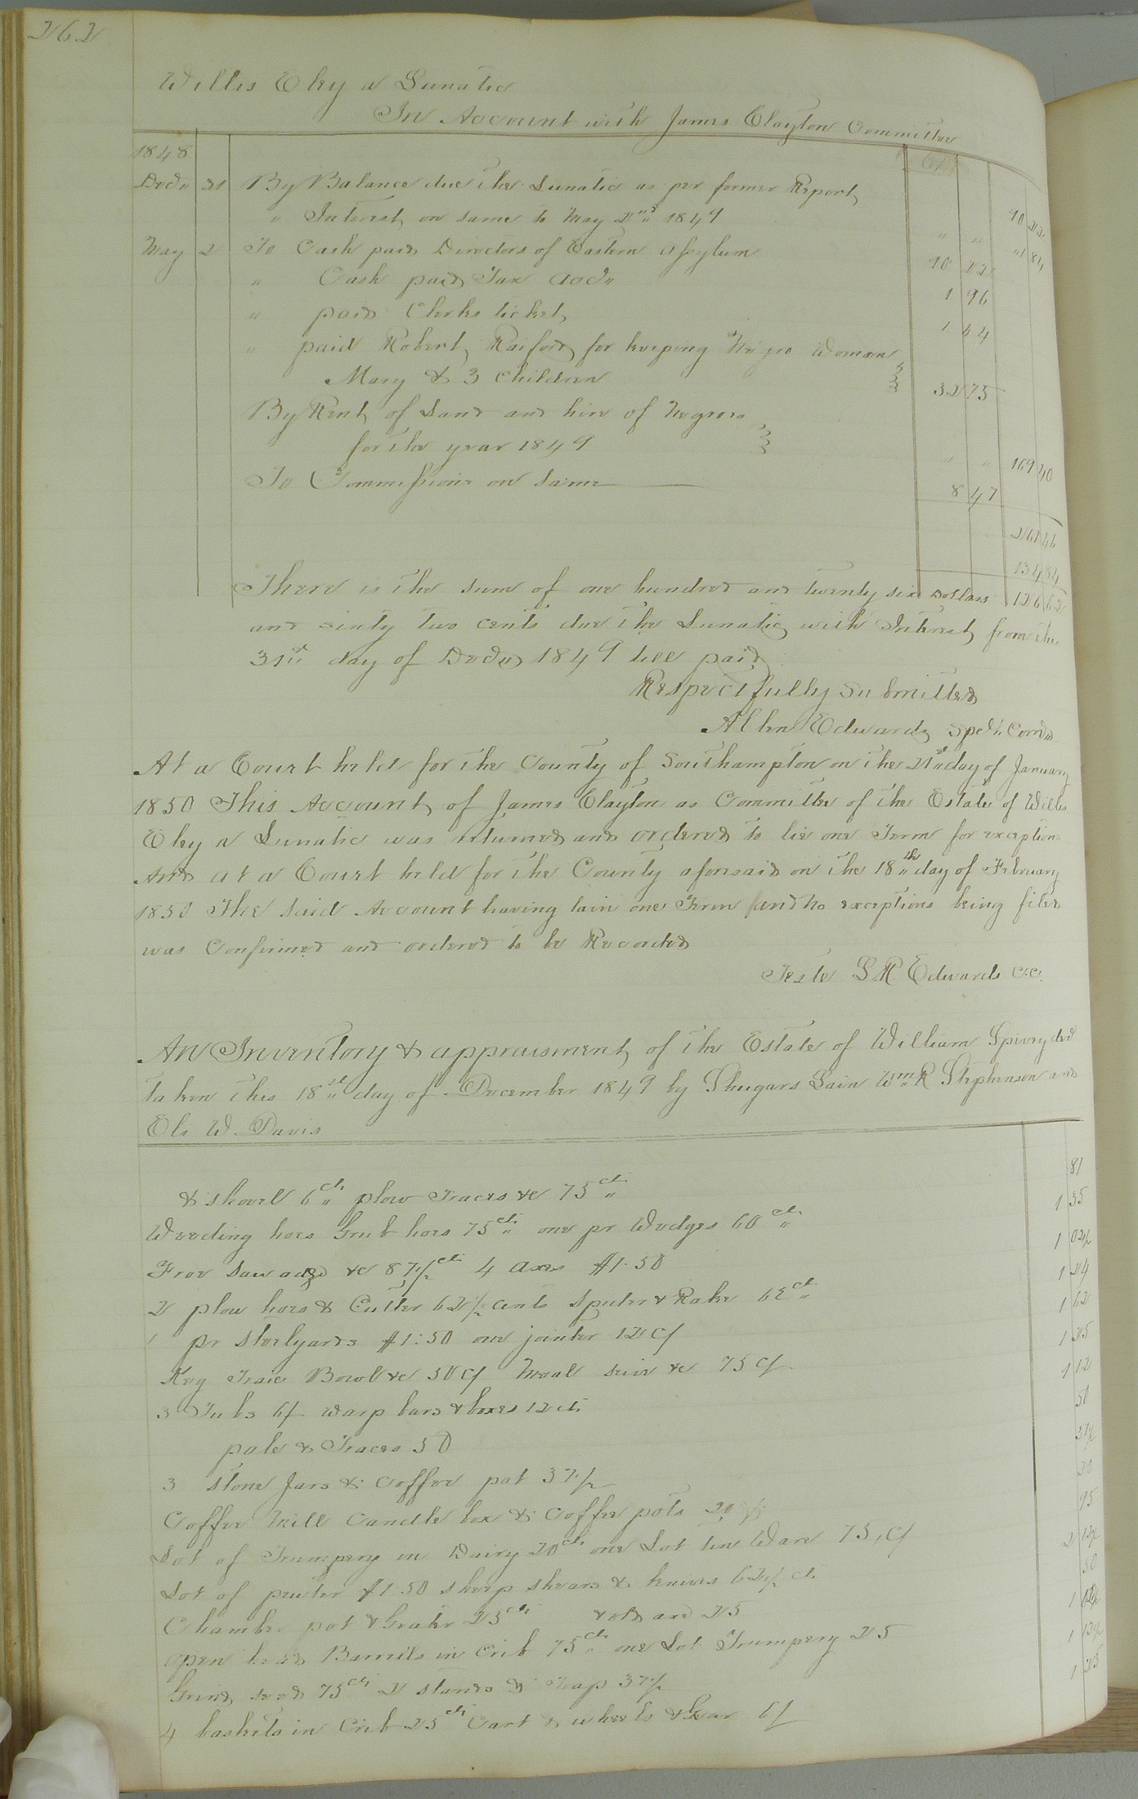 262
Willis Eley a Lunatic
In Account with James Clayton Committee
1848
Decr 31 By Balance due the Lunatic as per former Report 90 22
" Interest on same to May 2nd 1849 " " 1 84
May 2 To Cash paid Directors of Eastern Assylum 90 22
" Cash paid Tax accr 1 96
" paid Clerks ticket 1 44
" paid Robert Raiford for keeping Negro Woman
Mary & 3 Children 32 75
By Rent of Land and hire of Negroes
for the year 1849 " " 169 40
To Commissions on same 8 47
261 46
134 84
There is the sum of one hundred and twenty six Dollars 126 62
and sixty two cents due the Lunatic with Interest from the
31st day of Decr 1849 till paid
Respectfully Submitted
Allen Edwards Specl. Comr
At a Court held for the County of Southampton on the 21st day of January
1850 This Account of James Clayton as Committee of the Estate of Willis
Eley a Lunatic was returned and ordered to lie one Term for exception
And at a Court held for the County aforesaid on the 18th day of February
1850 The said Account having lain one Term and no exceptions being filed
was Confirmed and ordered to be Recorded
Teste L R Edwards C.C.
An Inventory & appraisment of the Estate of William Spivey decd
taken this 18th day of December 1849 by Shugars Lain Wm R Stephenson and
Ele W Davis
& shovel 6 cts plow Traces &c 75 cts 81
Weeding hoes Grub hoes 75 cts one pr Wedges 60 cts 1 35
Frow saw adze &c 87½ cts 4 axes $1.50
2 plow hoes & Cutter 62½ cents spider & Rake 62 cts 1 24
1 pr steelyards $1:50 one jointer 12 c/ 1 62
Keg Traie Bowl &c 50 c/ Meal seive &c 75 c/ 1 25
3 Tubs 6/ warp bars & boxes 12 cts 1 12
pale & Traces 50 50
3 stone Jars & Coffee pot 37½ 37½
Coffee Mill Candle box & Coffee pots 20 20
Lot of Trumpery in Dairy 20 cts one Lot tin Ware 75, c/ 95
Lot of pewter $1.50 sheep shears & knives 62½ ct 2 12½
Chamber pot & Grater 25 cts 25 50
open head Barrels in Crib 75 cts one Lot Trumpery 25
Grind 75 cts 2 stands & Trap 37½ 1 12½
4 baskets in Crib 25 cts Cart & wheels & Gear 6/ 1 25